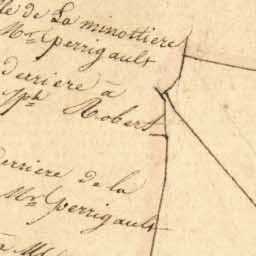 lle de La minottiere
Mr. Perrigault
derriere à
Jph Robert
derriere de la
Mr. Perrigault